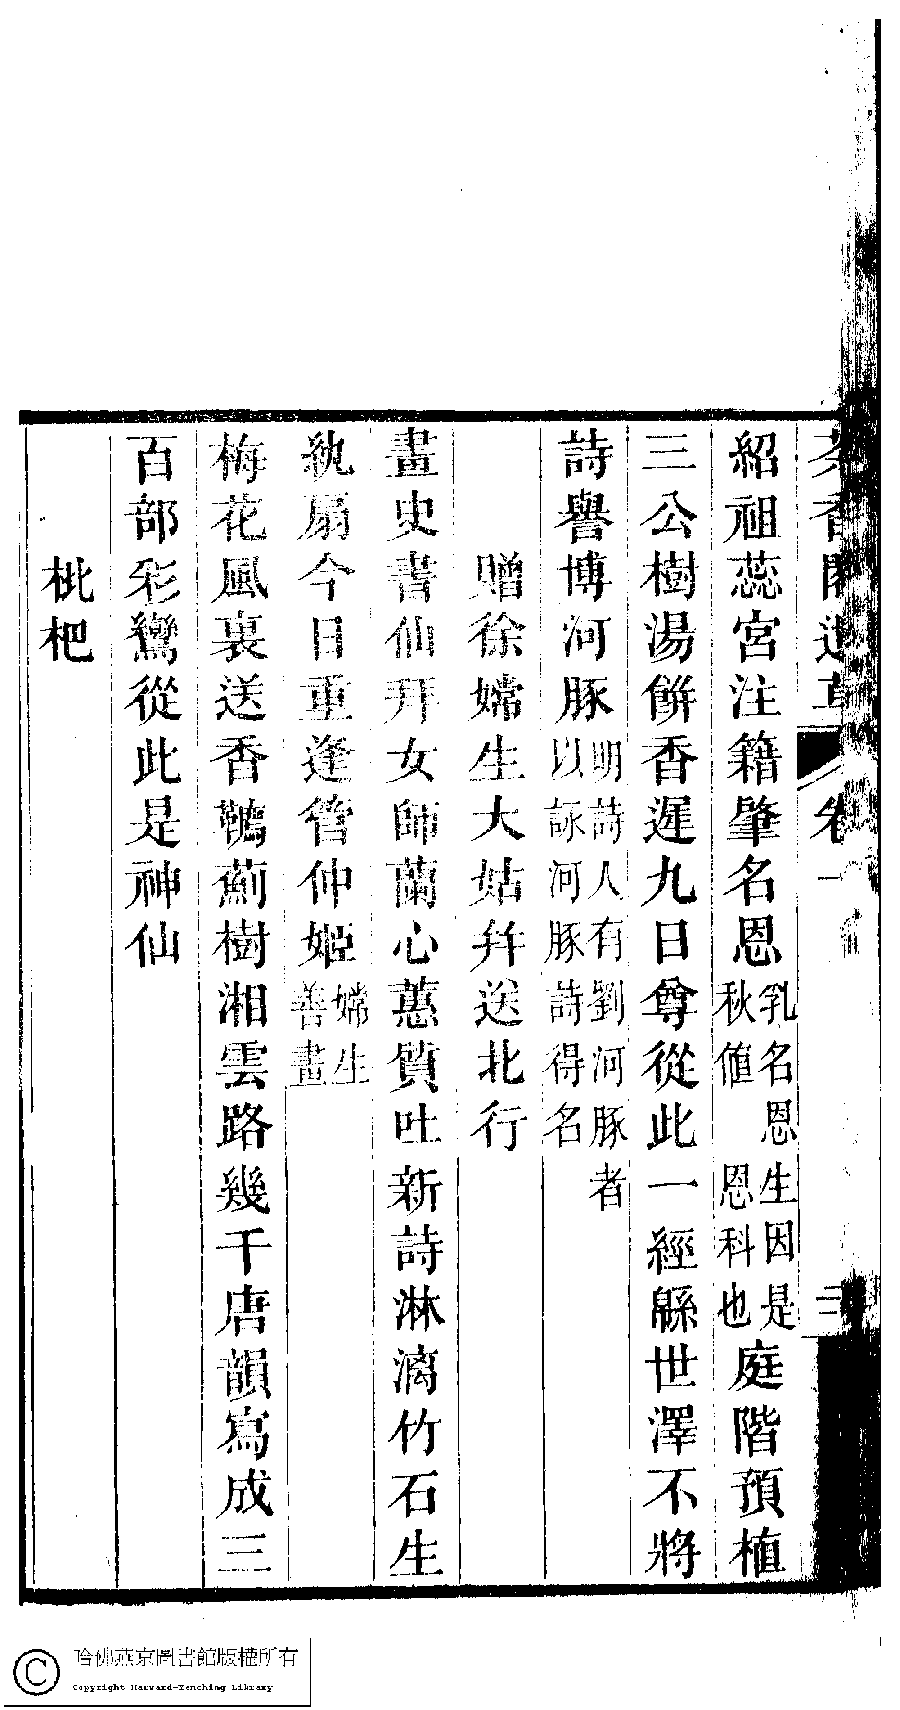 紹祖蕊宮注籍肇名恩乳名恩生因是秋値恩科也庭階預植
三公樹湯餅香遲九日尊從此一經緜世澤不將
詩譽博河豚明詩人有劉河豚者以詠河豚詩得名
贈徐嫦生大姑幷送北行
畫史書仙拜女師蘭心蕙質吐新詩淋漓竹石生
紈扇今日重逢管仲姬嫦生善畫
梅花風裏送香韉薊樹湘雲路幾千唐韻寫成三
百部彩鸞從此是神仙
枇杷
哈佛燕京圖書館版權所有
Copyright Harvard-Yenching Library